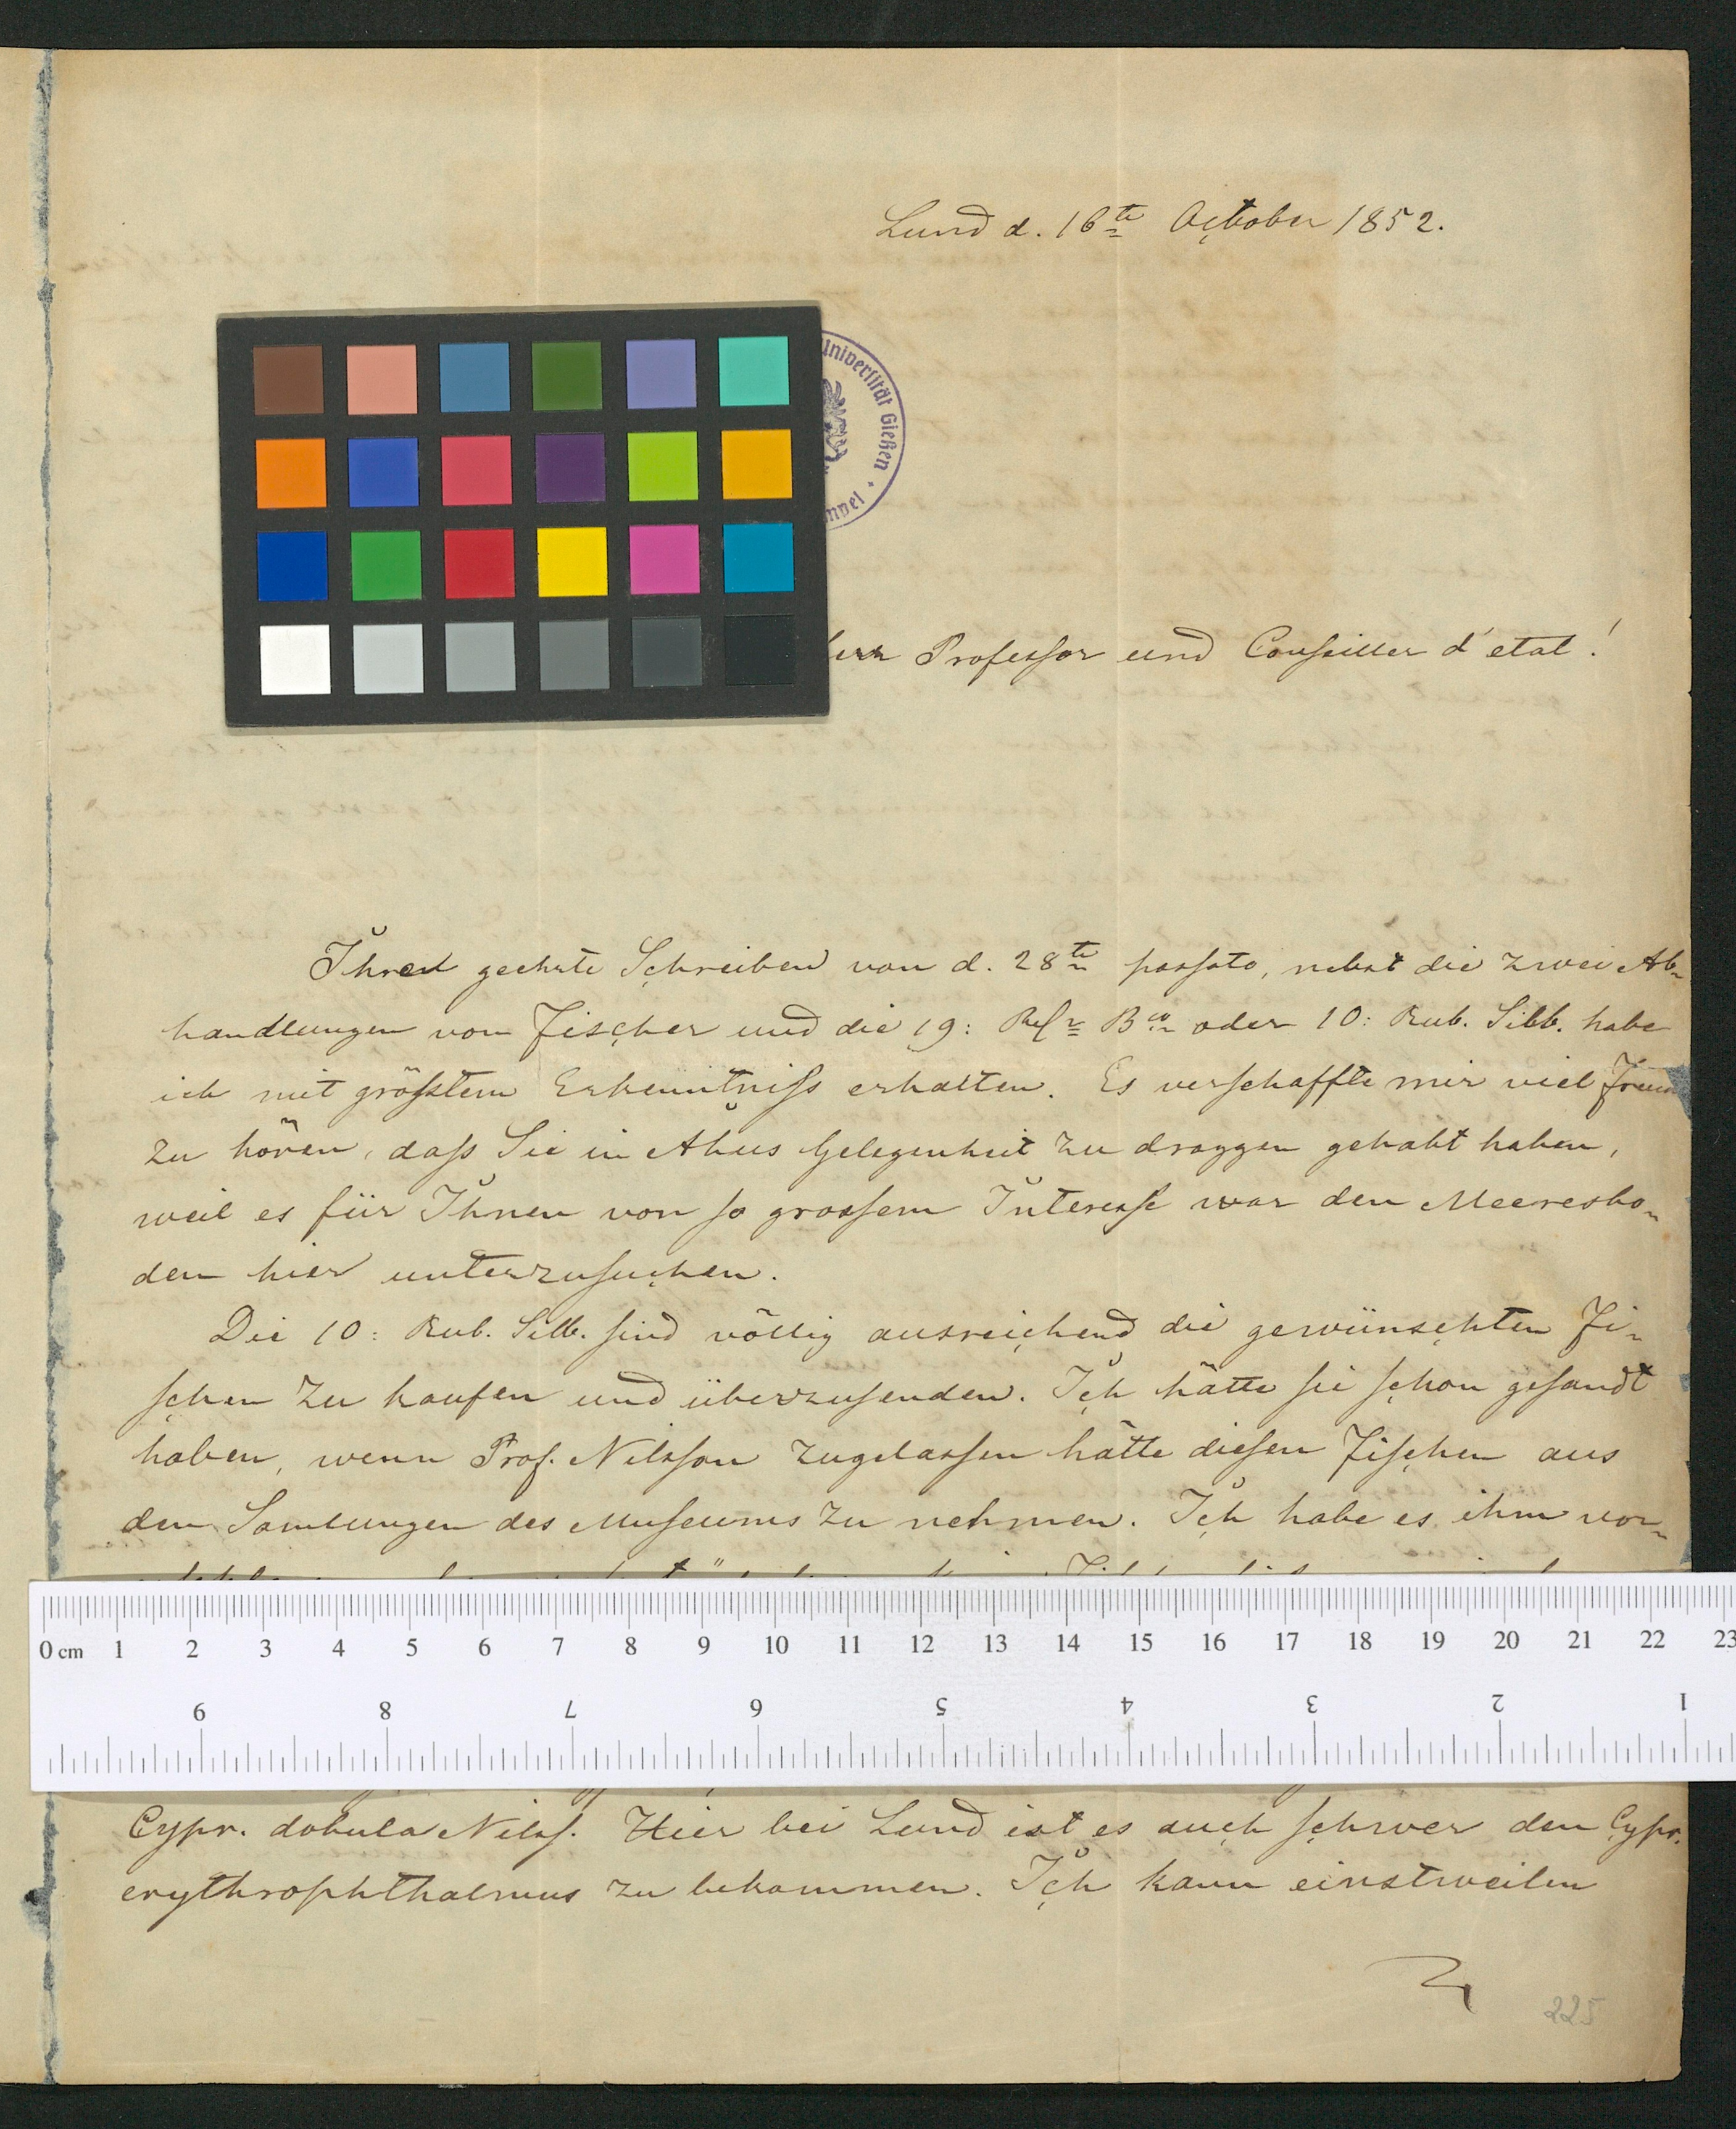 Lund d. 16te October 1852.
Universität Gießen
Herr Professor und Conseiller d'etat!
Ihred geehrte Schreiben von d. 28te passato, nebst die zwei Ab-
handlungen von Fischer und die 19: Rdr Bco oder 10: Rub. Silb. habe
ich mit größtem Erkenntniss erhalten. Es verschaffte mir viel
zu hören, dass Sie in Ahus Gelegenheit zu draggen gehabt haben,
weil es für Ihnen von so grossem Interesse war den Meeresbo-
den hier unterzusuchen.
Die 10: Rub. Silb. sind völlig ausreichend die gewünschten Fi-
schen zu kaufen und überzusenden. Ich hätte sie schon gesandt
haben, wenn Prof. Nilsson zugelassen hätte diesen Fischen aus
den Samlungen des Museums zu nehmen. Ich habe es ihm vor-
0 cm 1 2 3 4 5 6 7 8 9 10 11 12 13 14 15 16 17 18 19 20 21 22 23
9 8 7 6 5 4 3 2 1
Cypr. dobula Nilss. Hier bei Lund ist es auch schwer den Cypr.
erythrophthalmus zu bekommen. Ich kann einstweilen
225